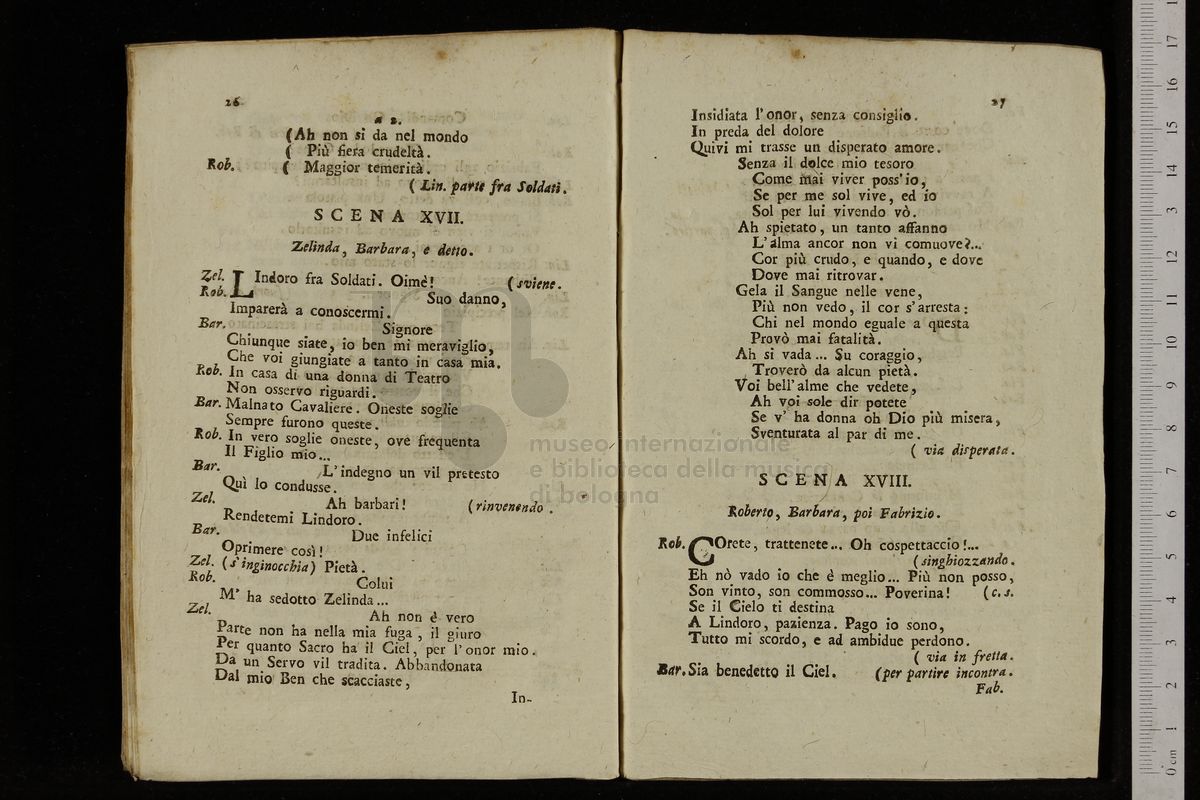 26
a 2.
(Ah non si da nel mondo
( Più fiera crudeltà.
Rob. ( Maggior temerità.
( Lin. parte fra Soldati.
SCENA XVII.
Zelinda, Barbara, e detto.
Zel. LIndoro fra Soldati. Oimè! (sviene.
Rob. Suo danno,
Imparerà a conoscermi.
Bar. Signore
Chiunque siate, io ben mi meraviglio,
Che voi giungiate a tanto in casa mia.
Rob. In casa di una donna di Teatro
Non osservo riguardi.
Bar. Malnato Cavaliere. Oneste soglie
Sempre furono queste.
Rob. In vero soglie oneste, ove frequenta
Il Figlio mio...
Bar. L'indegno un vil pretesto
Quì lo condusse.
Zel. Ah barbari! (rinvenendo.
Rendetemi Lindoro.
Bar. Due infelici
Oprimere così!
Zel. (s'inginocchia) Pietà.
Rob. Colui
M' ha sedotto Zelinda...
Zel. Ah non è vero
Parte non ha nella mia fuga, il giuro
Per quanto Sacro ha il Ciel, per l'onor mio.
Da un Servo vil tradita. Abbandonata
Dal mio Ben che scacciaste,
In-
27
Insidiata l'onor, senza consiglio.
In preda del dolore
Quivi mi trasse un disperato amore.
Senza il dolce mio tesoro
Come mai viver poss'io,
Se per me sol vive, ed io
Sol per lui vivendo vò.
Ah spietato, un tanto affanno
L'alma ancor non vi comuove?...
Cor più crudo, e quando, e dove
Dove mai ritrovar.
Gela il Sangue nelle vene,
Più non vedo, il cor s'arresta:
Chi nel mondo eguale a questa
Provò mai fatalità.
Ah si vada... Su coraggio,
Troverò da alcun pietà.
Voi bell'alme che vedete,
Ah voi sole dir potete
Se v' ha donna oh Dio più misera,
Sventurata al par di me.
( via disperata.
SCENA XVIII.
Roberto, Barbara, poi Fabrizio.
Rob. COrete, trattenete... Oh cospettaccio!...
(singhiozzando.
Eh nò vado io che è meglio... Più non posso,
Son vinto, son commosso... Poverina! (c.s.
Se il Cielo ti destina
A Lindoro, pazienza. Pago io sono,
Tutto mi scordo, e ad ambidue perdono.
( via in fretta.
Bar. Sia benedetto il Ciel. (per partire incontra.
Fab.
museo internazionale
e biblioteca della musica
di bologna
0 cm 1 2 3 4 5 6 7 8 9 10 11 12 13 14 15 16 17